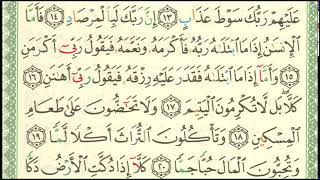 عَلَيْهِمْ رَبُّكَ سَوْطَ عَذَابٍ ١٣ إِنَّ رَبَّكَ لَبِٱلْمِرْصَادِ ١٤ فَأَمَّا
ٱلْإِنسَٰنُ إِذَا مَا ٱبْتَلَىٰهُ رَبُّهُۥ فَأَكْرَمَهُۥ وَنَعَّمَهُۥ فَيَقُولُ رَبِّىٓ أَكْرَمَنِ
١٥ وَأَمَّآ إِذَا مَا ٱبْتَلَىٰهُ فَقَدَرَ عَلَيْهِ رِزْقَهُۥ فَيَقُولُ رَبِّىٓ أَهَٰنَنِ ١٦
كَلَّا بَل لَّا تُكْرِمُونَ ٱلْيَتِيمَ ١٧ وَلَا تَحَٰٓضُّونَ عَلَىٰ طَعَامِ
ٱلْمِسْكِينِ ١٨ وَتَأْكُلُونَ ٱلتُّرَاثَ أَكْلًا لَّمًّا ١٩
وَتُحِبُّونَ ٱلْمَالَ حُبًّا جَمًّا ٢٠ كَلَّآ إِذَا دُكَّتِ ٱلْأَرْضُ دَكًّا